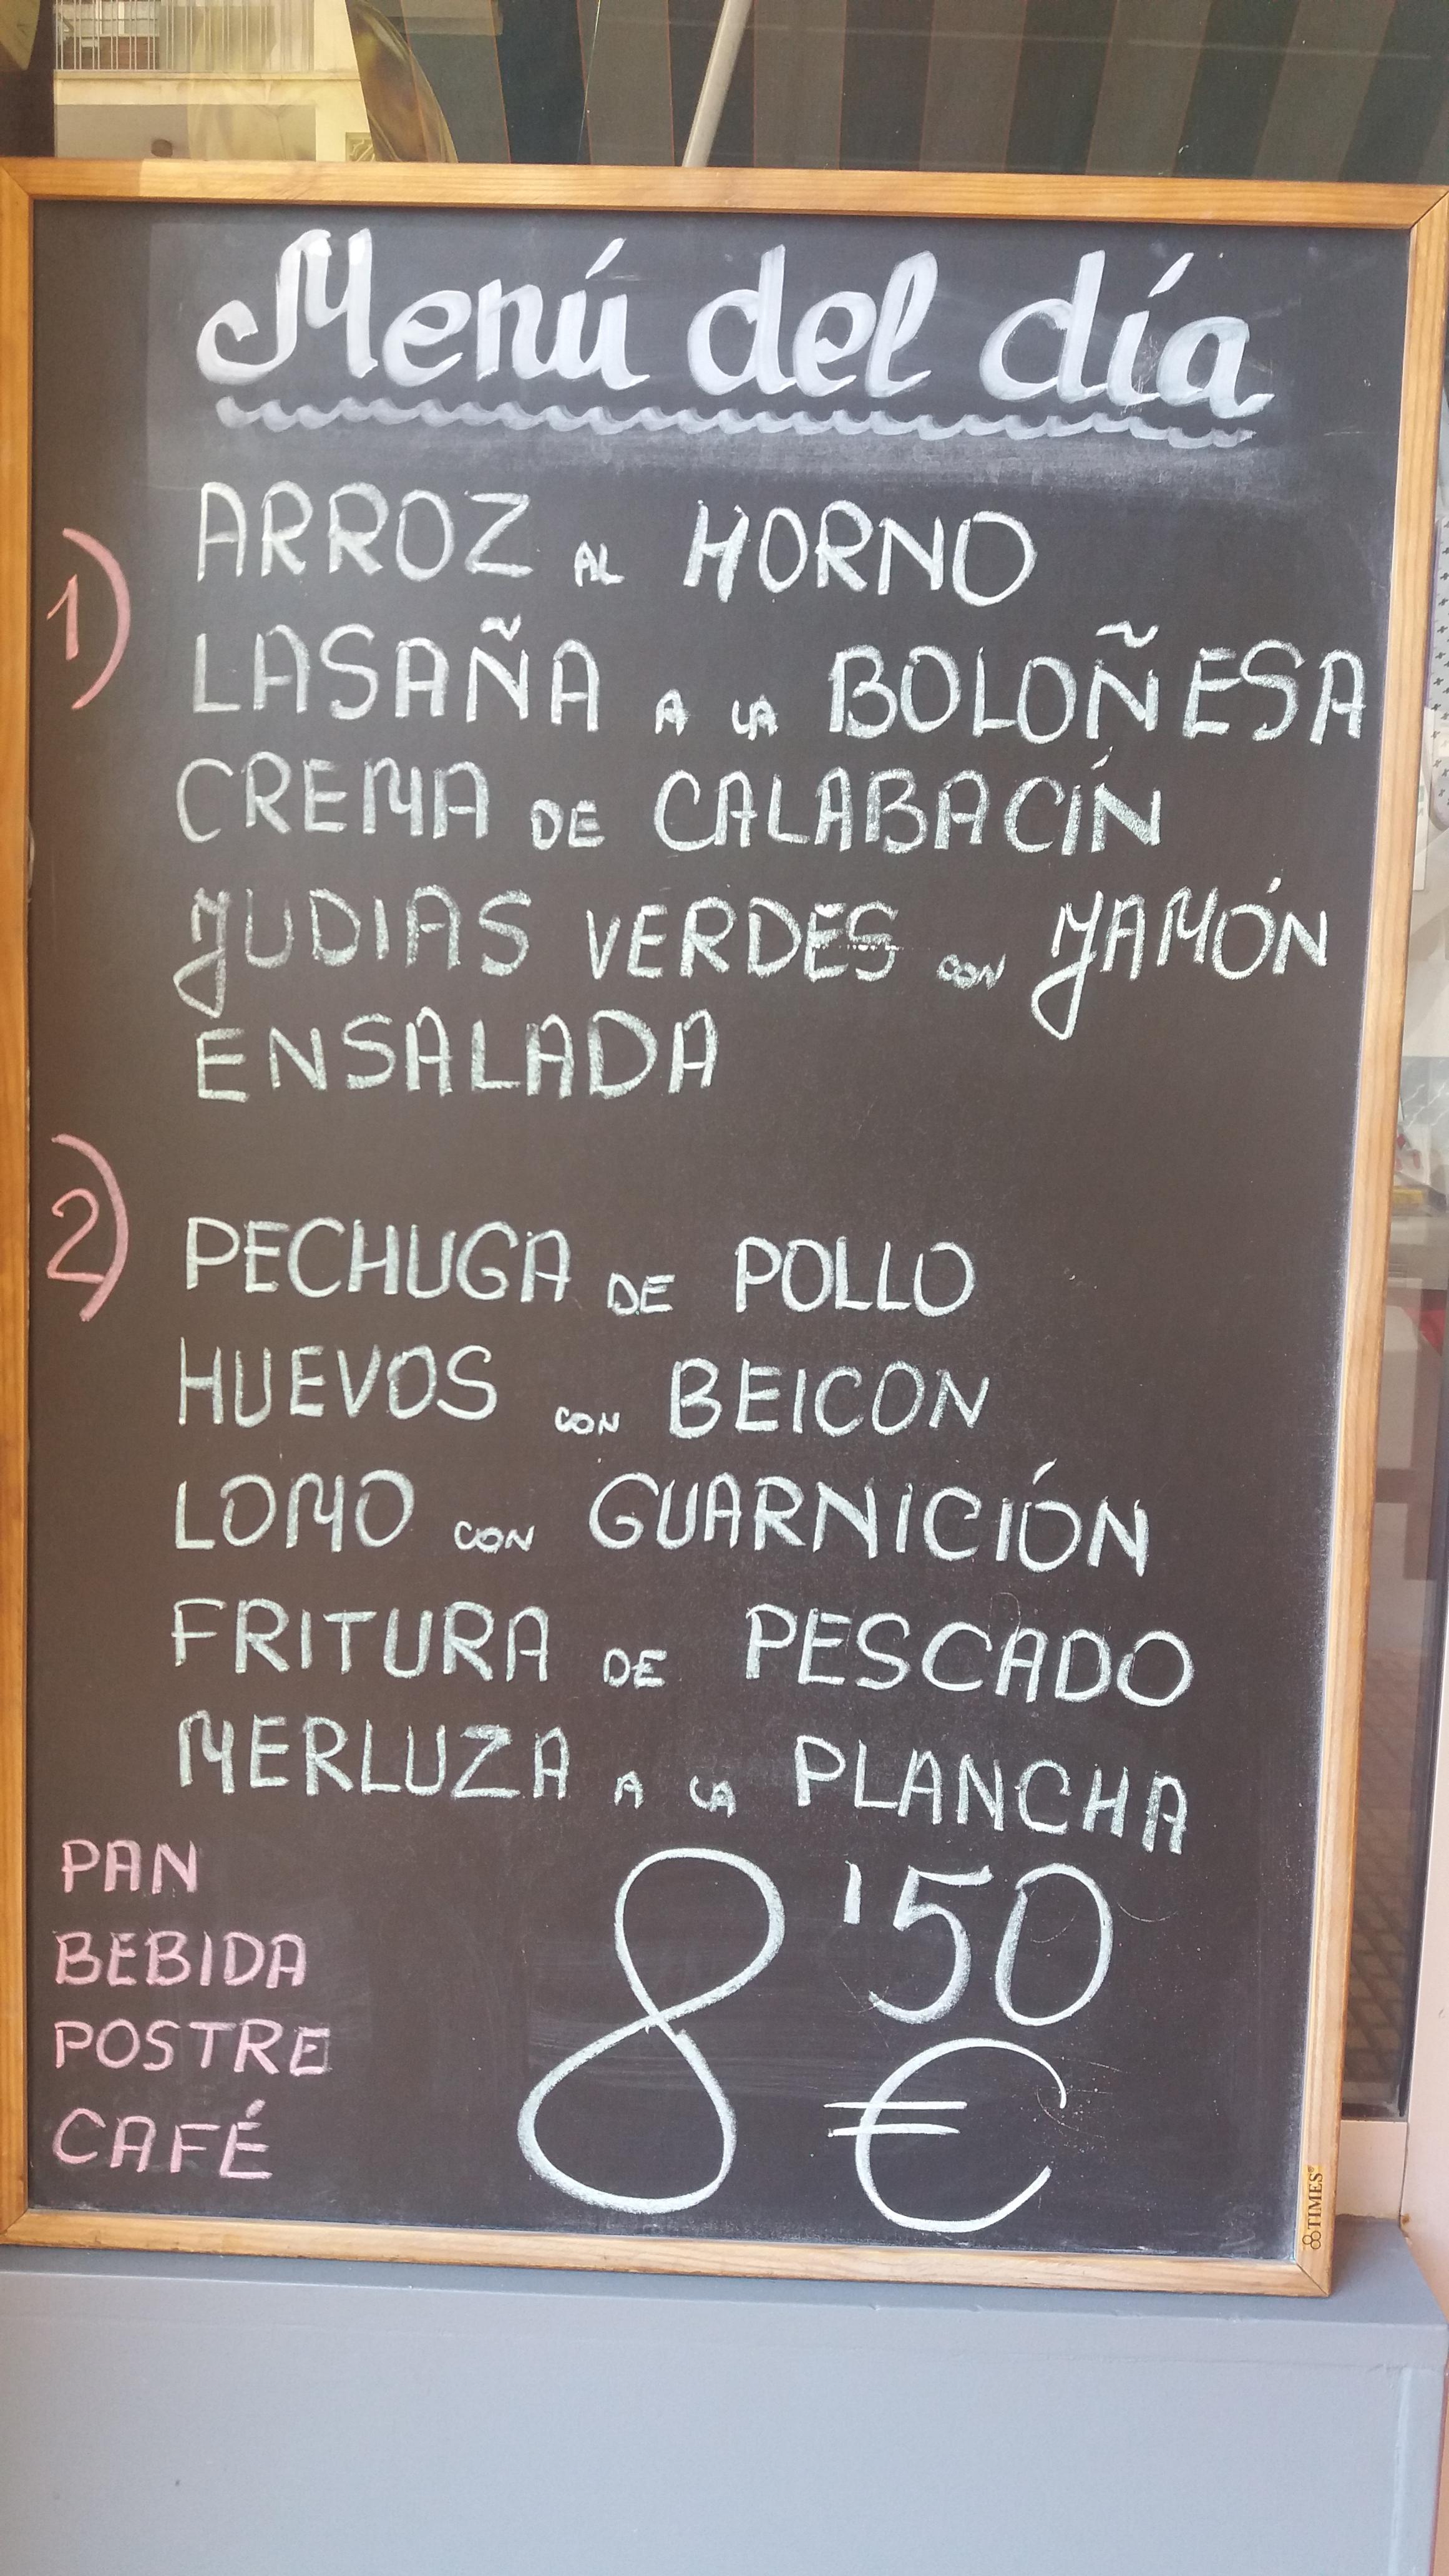 Menú del día
1)
ARROZ AL HORNO
LASAÑA A LA BOLOÑESA
CREMA DE CALABACÍN
JUDIAS VERDES CON JAMÓN
ENSALADA
2)
PECHUGA DE POLLO
HUEVOS CON BEICON
LOMO CON GUARNICIÓN
FRITURA DE PESCADO
MERLUZA A LA PLANCHA
PAN
BEBIDA
POSTRE
CAFÉ
8'50 €
TIMES®